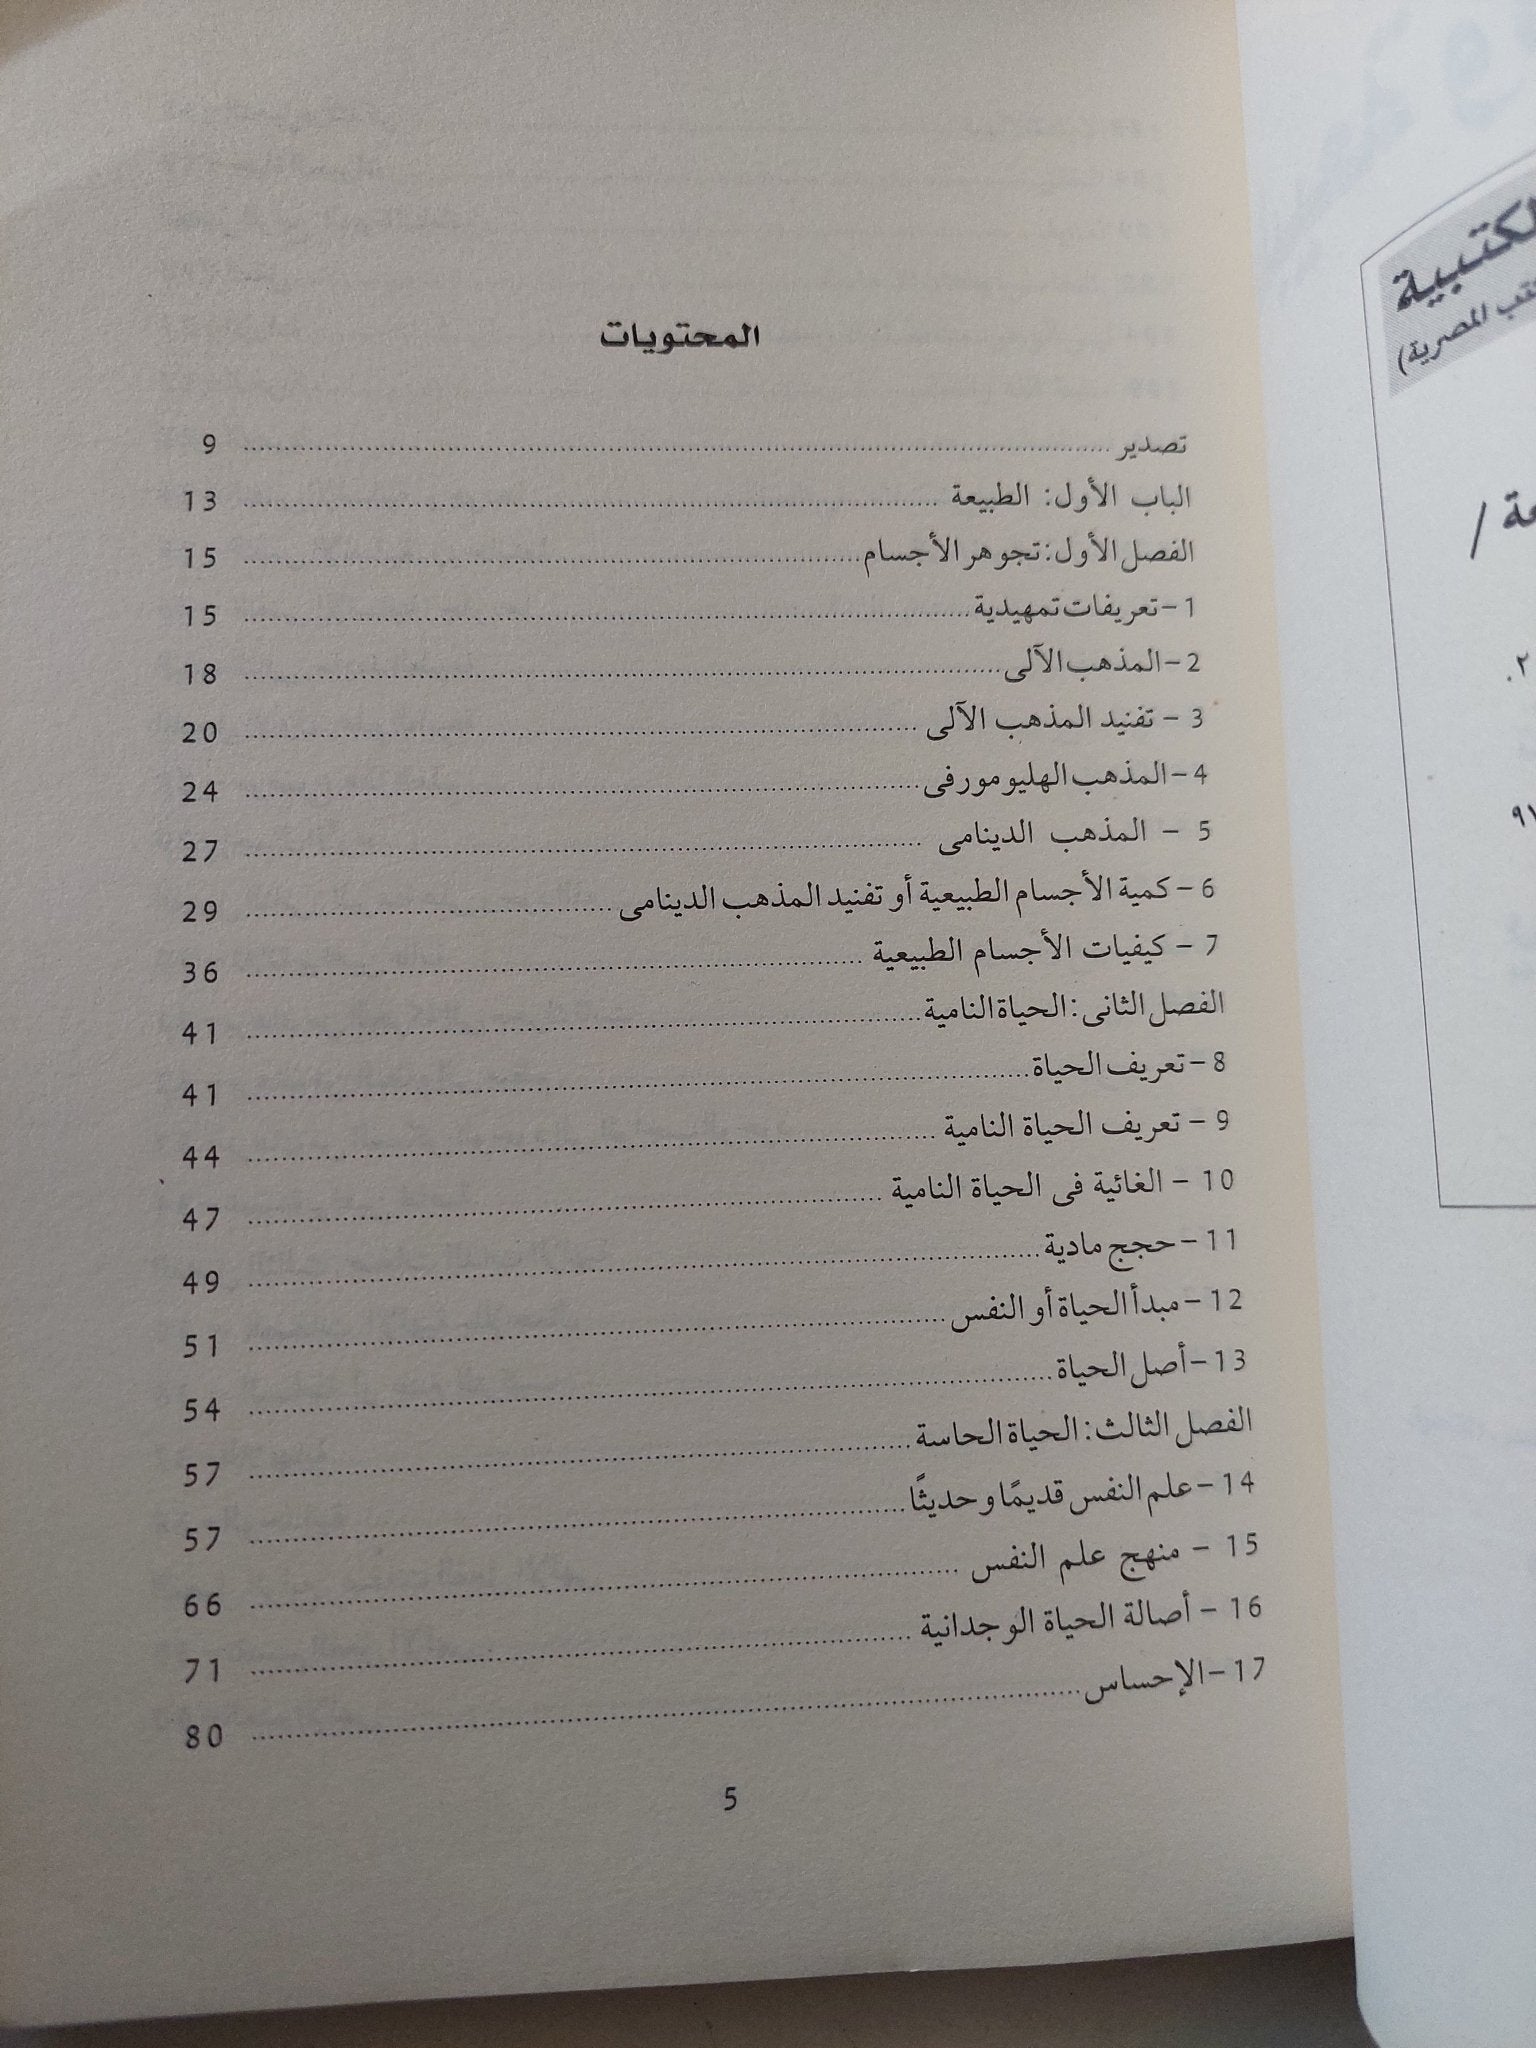 المحتويات
تصدير ........ 9
الباب الأول: الطبيعة ........ 13
الفصل الأول: تجوهر الأجسام ........ 15
1 – تعريفات تمهيدية ........ 15
2 – المذهب الآلى ........ 18
3 – تفنيد المذهب الآلى ........ 20
4 – المذهب الهليومورفى ........ 24
5 – المذهب الدينامى ........ 27
6 – كمية الأجسام الطبيعية أو تفنيد المذهب الدينامى ........ 29
7 – كيفيات الأجسام الطبيعية ........ 36
الفصل الثانى: الحياة النامية ........ 41
8 – تعريف الحياة ........ 41
9 – تعريف الحياة النامية ........ 44
10 – الغائية فى الحياة النامية ........ 47
11 – حجج مادية ........ 49
12 – مبدأ الحياة أو النفس ........ 51
13 – أصل الحياة ........ 54
الفصل الثالث: الحياة الحاسة ........ 57
14 – علم النفس قديمًا وحديثًا ........ 57
15 – منهج علم النفس ........ 66
16 – أصالة الحياة الوجدانية ........ 71
17 – الإحساس ........ 80
5
المصرية)